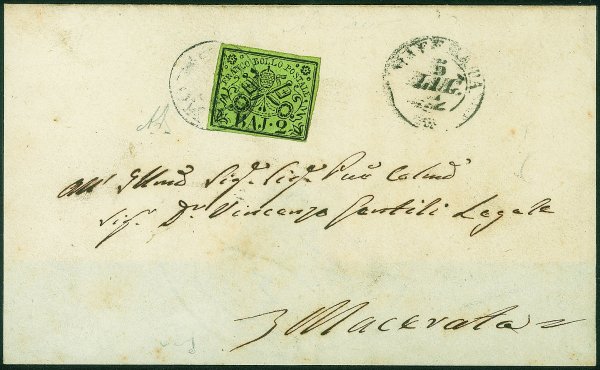 FRANCO BOLLO POSTALE
BAJ. 2
MACERATA
5
LUG.
All' Illmo Sig. Sig. Pne Colmo
Sig. Dr. Vincenzo Gentili Legale
Macerata